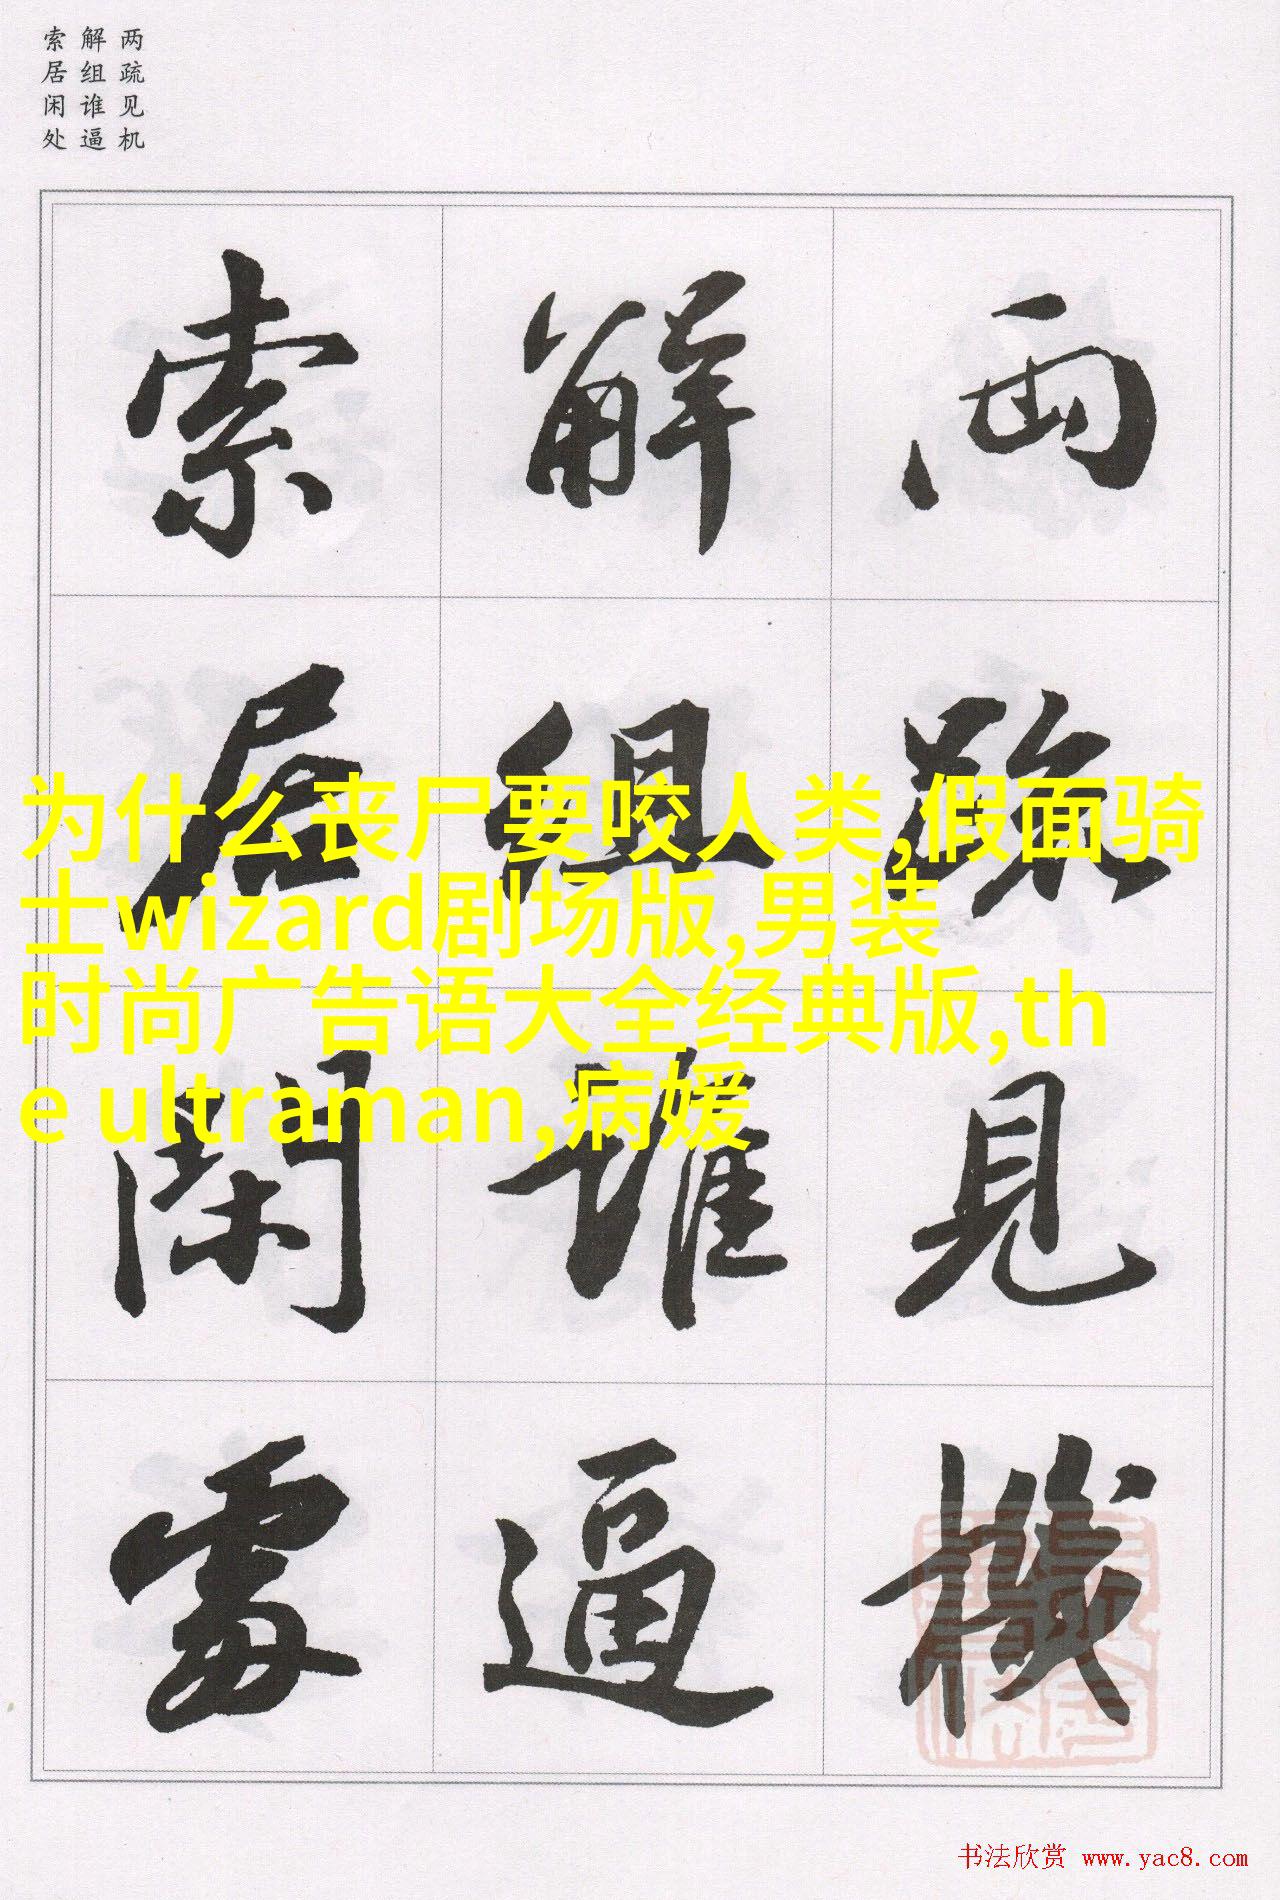 两疏见机
解组谁逼
索居闲处
两疏見機
解組誰逼
索居閑處
为什么丧尸要咬人类,假面骑
士wizard剧场版,男装
时尚广告语大全经典版,th
e ultraman,病媛
书法欣赏 www.yac8.com